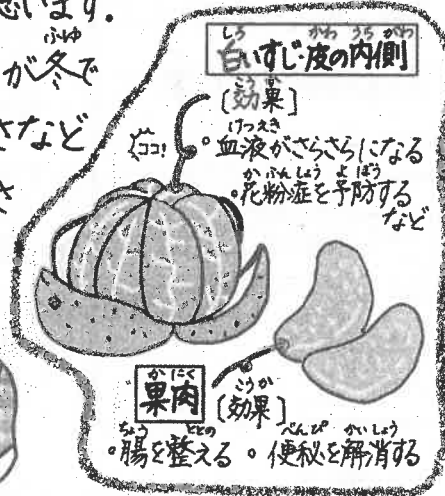 思います。
が冬で
さなど
白いすじ・皮の内側
[効果]
ココ!
・血液がさらさらになる
・花粉症を予防する
など
果肉
[効果]
・腸を整える ・便秘を解消する